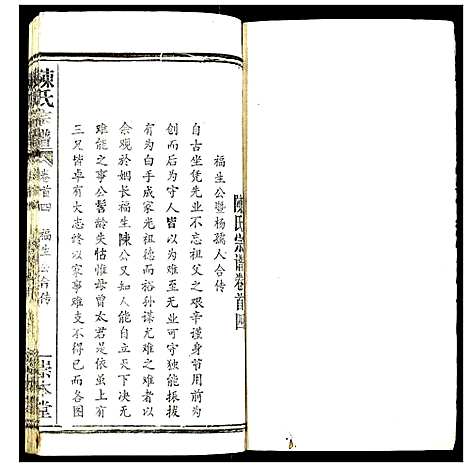 陳氏宗譜卷首四
福生公暨楊孺人合傳
自古坐凭先业不忘祖父之艰辛谨身节用前为
创而后为守人皆以为难至无可守而独能振拔
有为白手成家光祖德而裕孙谋尤难之难者以
余观於姻长福生陳公又知人能自立天下决无
难能之事公髫龄失怙惟母曾太君是依虽上有
三兄皆卓有大志终以家事难支不得已而各图
陳氏宗譜
卷首四
福生公合传
崇本堂